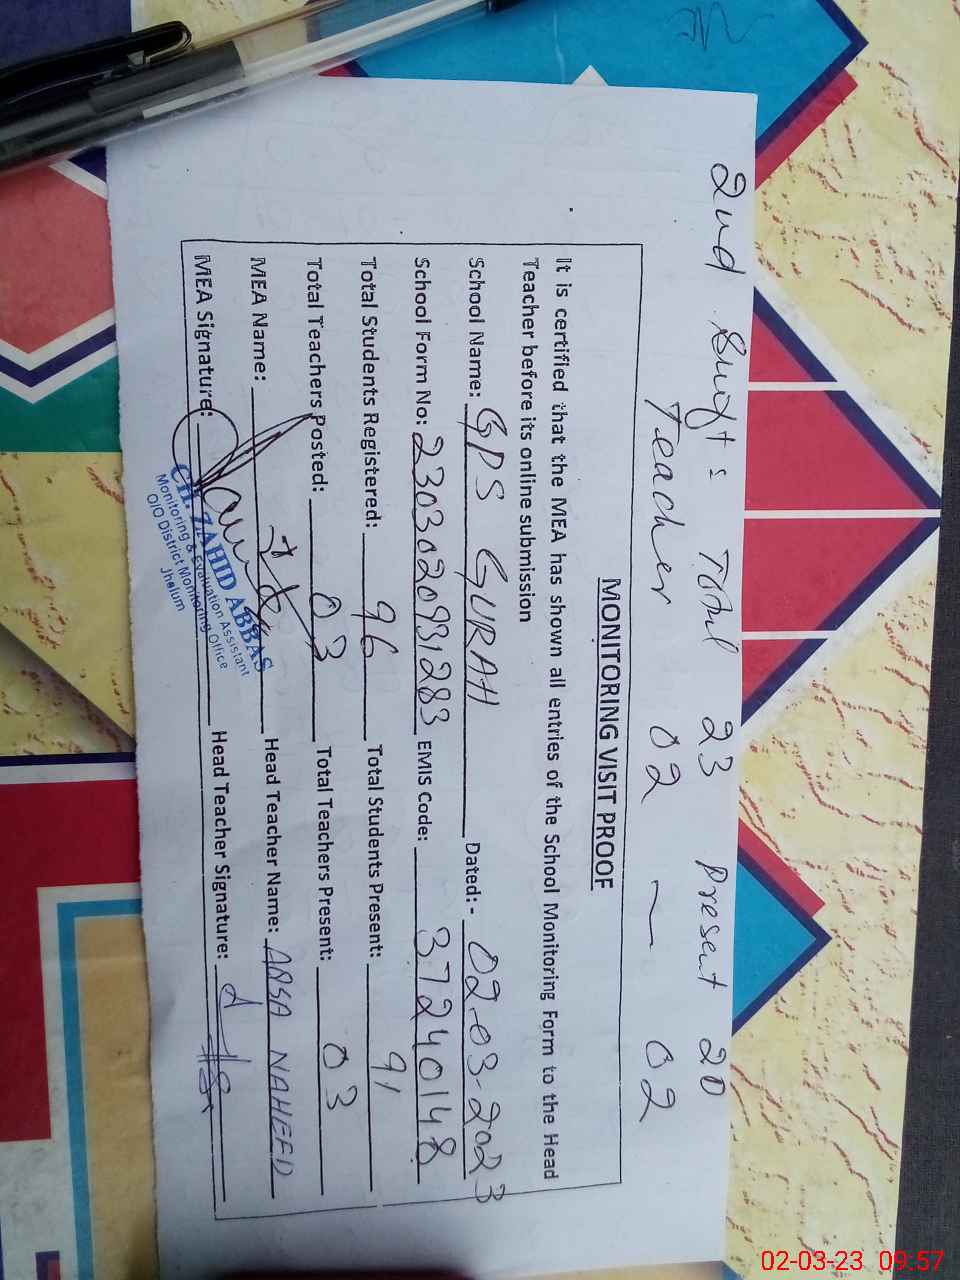 2nd Shift: Total 23 Present 20
Teacher 02 ~ 02
MONITORING VISIT PROOF
It is certified that the MEA has shown all entries of the School Monitoring Form to the Head
Teacher before its online submission
School Name: GPS GURAH Dated:- 02-03-2023
School Form No: 2303020931283 EMIS Code: 37240148
Total Students Registered: 96 Total Students Present: 91
Total Teachers Posted: 03 Total Teachers Present: 03
MEA Name: Head Teacher Name: ARSA NAHEED
MEA Signature: Head Teacher Signature:
CH. ZAHID ABBAS
Monitoring & Evaluation Assistant
O/O District Monitoring Office
Jhelum
02-03-23 09:57